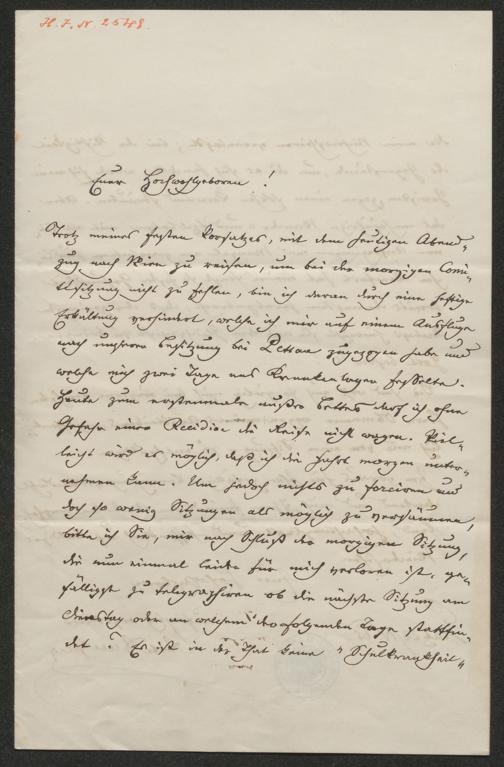 H. I. N. 2548.
Euer Hochwohlgeboren!
Trotz meines festen Vorsatzes, mit dem heutigen Abend-
zug nach Wien zu reisen, um bei der morgigen Comi-
tésitzung nicht zu fehlen, bin ich daran durch eine heftige
Erkältung verhindert, welche ich mir auf einem Ausfluge
nach unserer Besitzung bei Pettau zugezogen habe und
welche mich zwei Tage ans Krankenlager fesselte.
Heute zum erstenmale außer Bettes darf ich ohne
Gefahr einer Recidive die Reise nicht wagen. Viel-
leicht wird es möglich, daß ich die Fahrt morgen unter-
nehmen kann. Um jedoch nichts zu forciren und
doch so wenig Sitzungen als möglich zu versäumen,
bitte ich Sie, mir nach Schluß der morgigen Sitzung,
die nun einmal leider für mich verloren ist, ge-
fälligst zu telegraphiren ob die nächste Sitzung am
Dienstag oder an welchem der folgenden Tage stattfin-
det? Es ist in der That keine "Schulkrankheit"